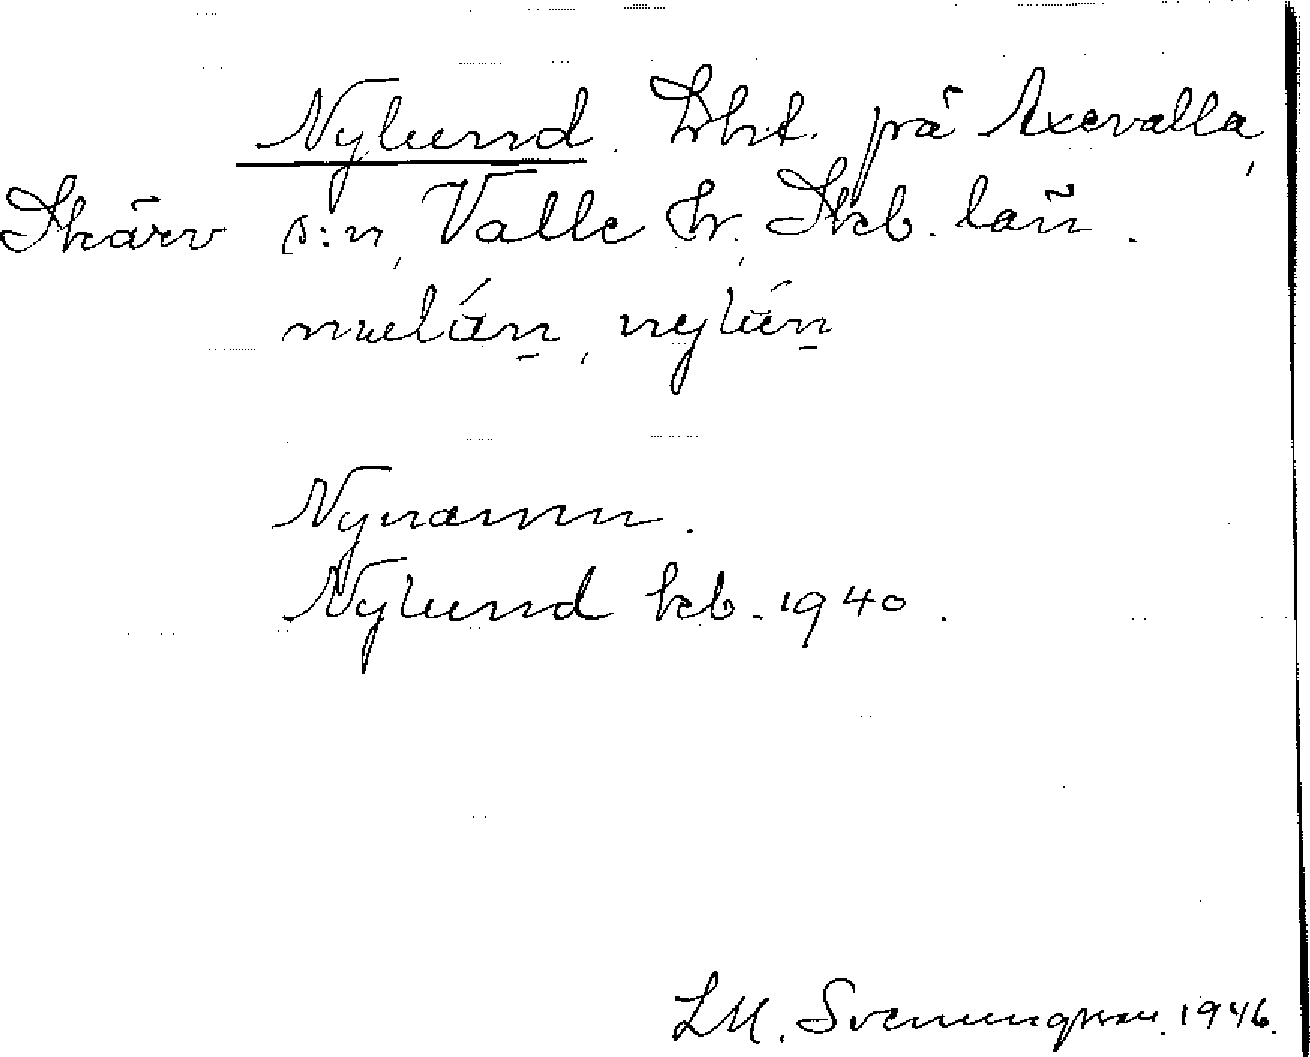 Nylund. Lht. på Axevalla,
Skärv s:n, Valle hr, Skb. län.
Nynamn.
Nylund kb. 1940.
LM. Svenungsson. 1946.